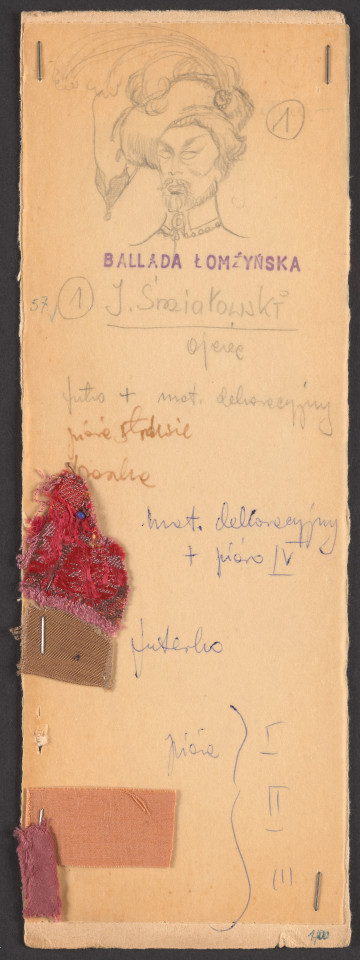 1
BALLADA ŁOMŻYŃSKA
57 1 J. Śmiałowski
futro + mat. dekoracyjny
pióra strusie
mat. dekoracyjny
+ pióro IV
futerko
pióra I
II
III
1,00